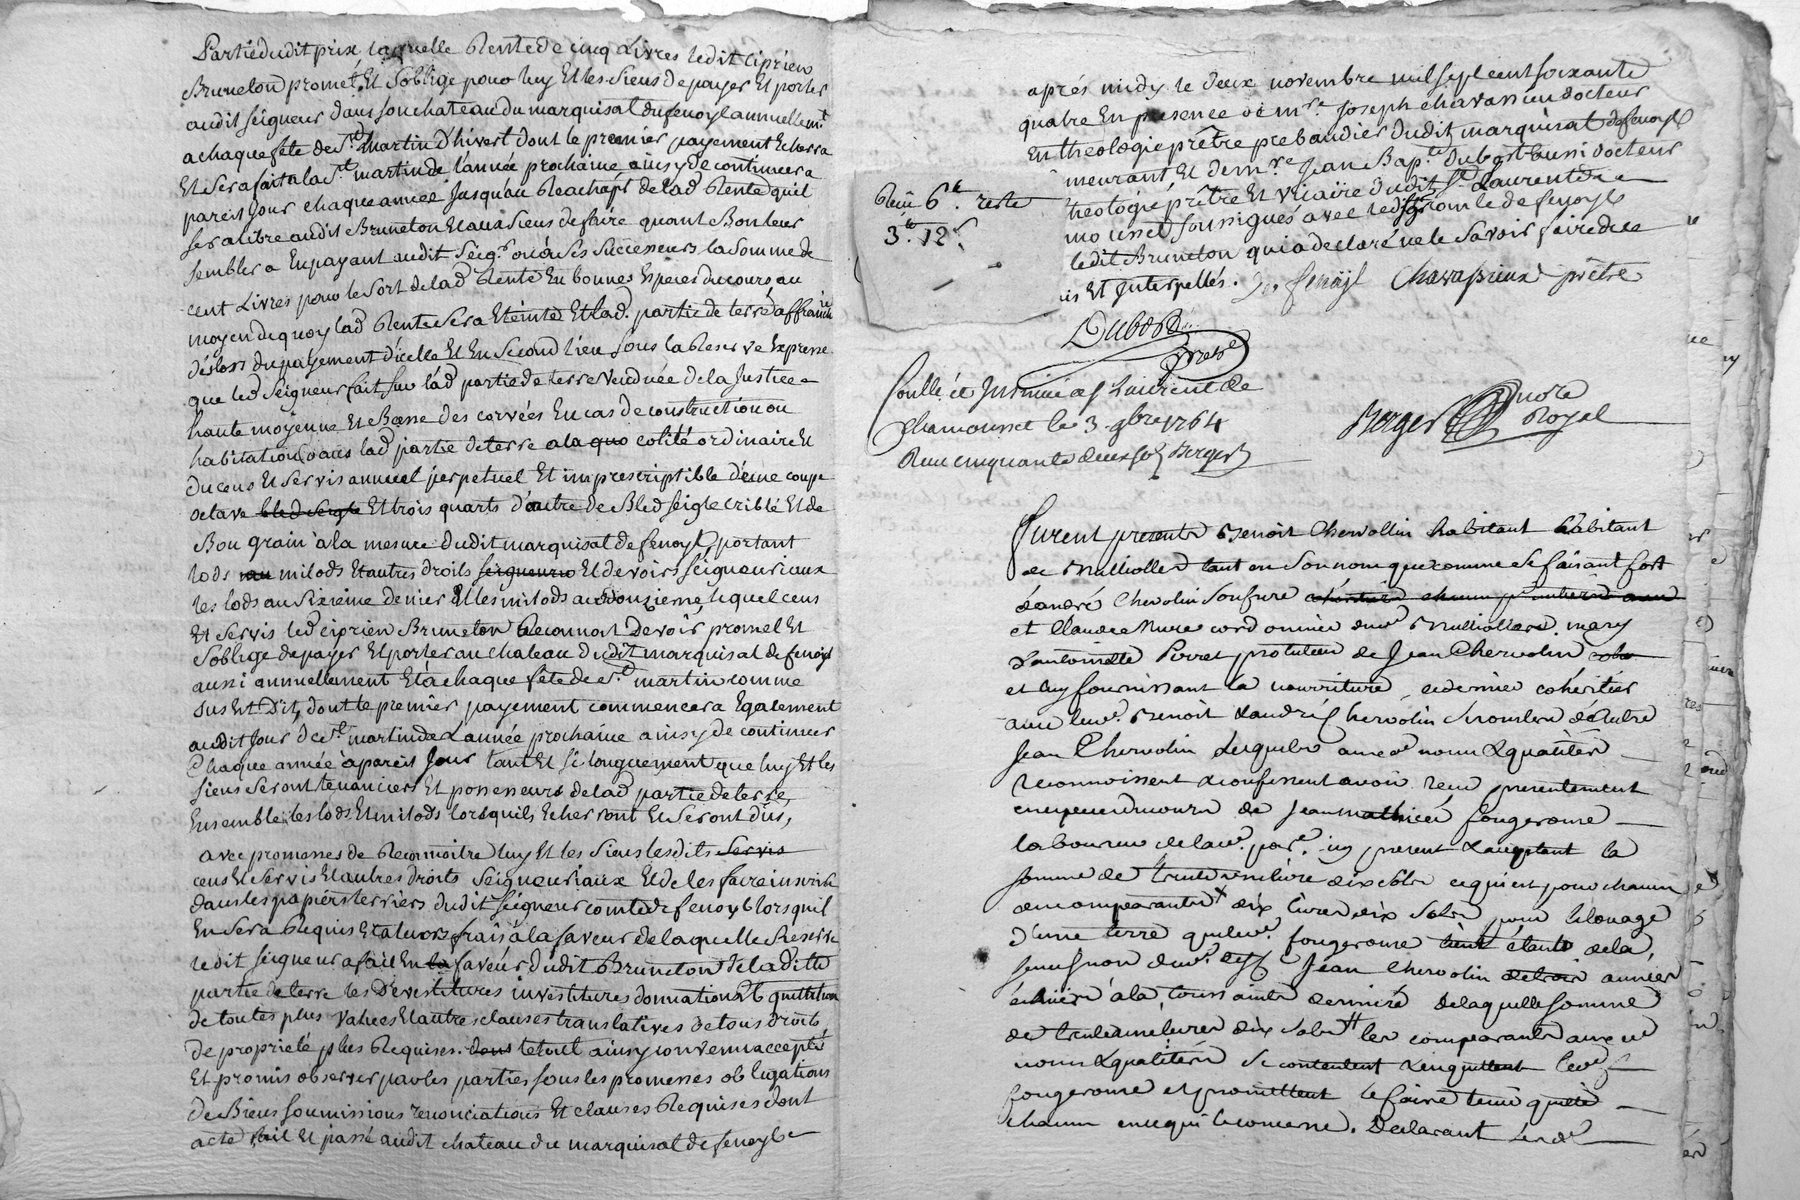 Partie dudit prix laquelle Rente de cinq Livres ledit Ciprien
Bruneton promet Et S'oblige pour luy Et les Siens de payer Et porter
audit Seigneur dans son chateau du marquisat du fenoyl annuellemt
a chaque fête de St martin D'hivert dont le premier payement Echerra
Et Sera fait a la St martin de l'année prochaine ainsy de continuer a
pareil Jour chaque année Jusqu'au Reachapt de lad Rente qu'il
Sera libre audit Bruneton Et aux Siens de faire quant Bon leur
semblera En payant audit Seigr ou à Ses Successeurs la Somme de
cent Livres pour le Sort de lad Rente En bonnes Especes du cours au
moyen de quoy lad Rente Sera Eteinte Et lad. partie de terre affranchie
dés lors du payement d'icelle Et En Second lieu Sous la Reserve Expresse
que led Seigneur fait Sur lad partie de terre vendue de la Justice
haute moyenne Et Basse des corvées En cas de construction ou
habitation dans lad partie de terre a la quo cotité ordinaire Et
du cens Et Servis annuel perpetuel Et imprescriptible d'une coupe
octave bled seigle Et trois quarts d'autre de Bled seigle criblé Et de
Bon grain à la mesure dudit marquisat de fenoyl, portant
lods au milods Et autres droits seigneurio Et devoirs Seigneuriaux
les lods au Sixieme denier Et les milods au Douzieme, lequel cens
Et Servis led Ciprien Bruneton Reconnoit Devoir, promet Et
S'oblige de payer Et porter au chateau dudit marquisat de fenoyl
aussi annuellement Et à chaque fête de St martin comme
sus Est Dit, dont le premier payement commencera Egalement
audit Jour de St martin de L'année prochaine ainsy de continuer
Chaque année à pareil Jour tant Et Si longuement que luy Et les
Siens Seront tenanciers Et possesseurs de lad partie de terre,
Ensemble les lods Et milods lorsquils Echerront En Seront dûs,
avec promesses de Reconnoitre luy Et les Siens lesdits Servis
cens Et Servis Et autres droits Seigneuriaux Et de les faire inscrire
dans les papiers terriers dudit Seigneur comte de fenoyl lorsquil
En Sera Requis Et a leurs frais à la faveur de laquelle Reserve
ledit Seigneur a fait En la faveur dudit Bruneton de la ditte
partie de terre les Devestitures investitures donnations Et quittition
de toutes plus values Et autres clauses translatives de tous droits
de proprieté plus Requises. dont le tout ainsy convenu accepté
Et promis observer par les parties Sous les promesses obligations
de Biens Soumissions renonciations Et clauses Requises dont
acte fait Et passé audit chateau du marquisat de fenoyl
après midy le deux novembre mil sept cent soixante
quatre En presence de mre Joseph chavassieu docteur
En theologie prêtre prebandier dudit marquisat de fenoyl
meurant Et de mre Jean Bapte Dubost aussi docteur
theologie prêtre Et vicaire dudit St Laurent de
mousset Soussignés avec led Sgr comte de fenoyl
ledit Bruneton qui a declaré ne le Savoir faire de ce
is Et Interpellés. De fenoÿl Chavassieux prêtre
Reçu 6tt reste
3tt 12s
Dubost
prêtre
Conllé et Insinué a St Laurent de
Chamousset le 3 9bre 1764
Reçu cinquante deux sols Berger
Berger note
Royal
Furent presents Benoit Chervollin habitant habitant
de Brulliolles tant en Son nom que comme Se faisant fort
d'andré Chervolin Son frere
et Claude Mure cordonnier dud Brulliolles. mary
d'antoinette Perret protuteur de Jean Chervolin,
et luy fournissant la nourriture, ce dernier cohéritier
avec led. Benoit & andré Chervolin de autre
Jean Chervolin lesquels aux d noms & qualités
reconnoissent & confessent avoir reçu presentement
de Jean mathieu fougerouse
laboureur de lad. par. icy present & acceptant la
Somme de trente un livre dix Sols ce qui est pour chacun
des comparants dix livres dix Sols pour le louage
d'une terre que led. fougerouse tient étant de la
Succession dud. Jean Chervolin années
à la toussaints derniere De laquelle Somme
de trente une livres dix Sols les comparants aux d
noms & qualités Se contentent & en quittent led
fougerouse et promettent le faire tenir quitte
chacun en ce qui le concerne. Declarant led